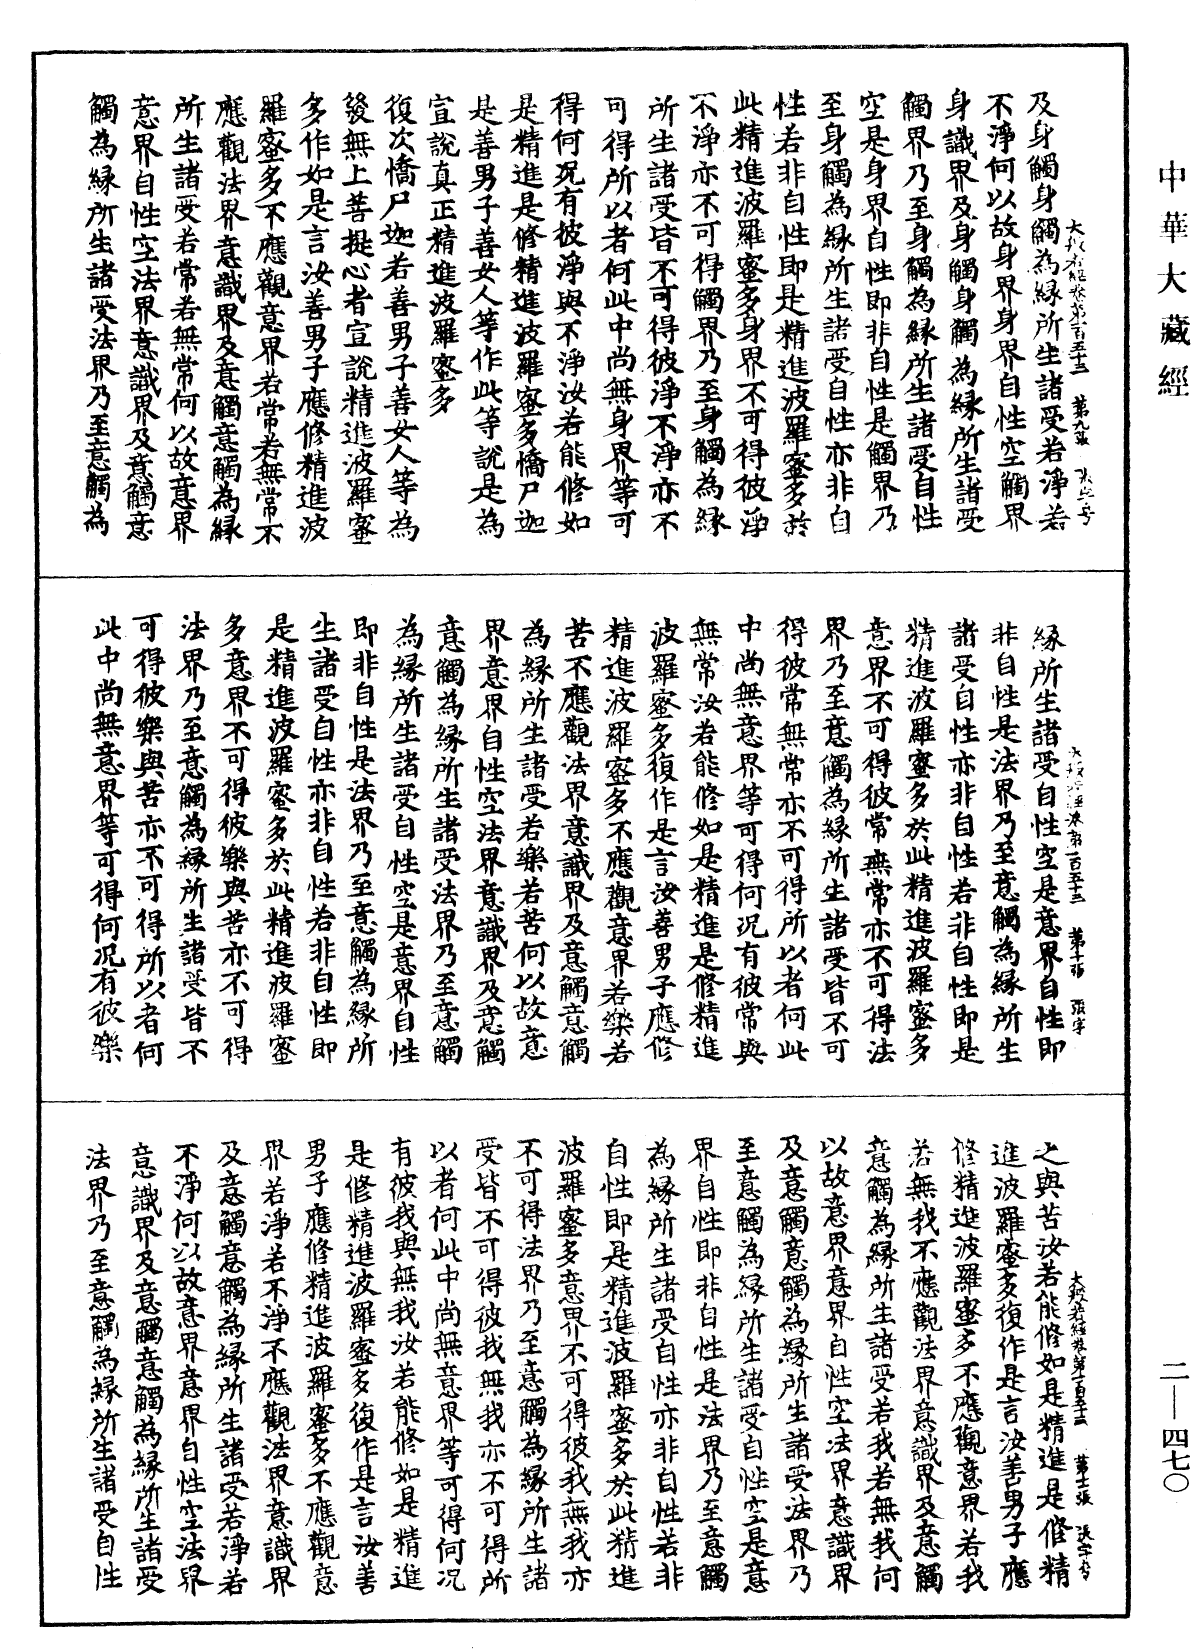 中華大藏經
二—四七〇
及身觸身觸為緣所生諸受若淨若
不淨何以故身界身界自性空觸界
身識界及身觸身觸為緣所生諸受
觸界乃至身觸為緣所生諸受自性
空是身界自性即非自性是觸界乃
至身觸為緣所生諸受自性亦非自
性若非自性即是精進波羅蜜多於
此精進波羅蜜多身界不可得彼淨
不淨亦不可得觸界乃至身觸為緣
所生諸受皆不可得彼淨不淨亦不
可得所以者何此中尚無身界等可
得何況有彼淨與不淨汝若能修如
是精進是修精進波羅蜜多憍尸迦
是善男子善女人等作此等說是為
宣說真正精進波羅蜜多
復次憍尸迦若善男子善女人等為
發無上菩提心者宣說精進波羅蜜
多作如是言汝善男子應修精進波
羅蜜多不應觀意界若常若無常不
應觀法界意識界及意觸意觸為緣
所生諸受若常若無常何以故意界
意界自性空法界意識界及意觸意
觸為緣所生諸受法界乃至意觸為
大般若經卷第一百五十三 第九張
緣所生諸受自性空是意界自性即
非自性是法界乃至意觸為緣所生
諸受自性亦非自性若非自性即是
精進波羅蜜多於此精進波羅蜜多
意界不可得彼常無常亦不可得法
界乃至意觸為緣所生諸受皆不可
得彼常無常亦不可得所以者何此
中尚無意界等可得何況有彼常與
無常汝若能修如是精進是修精進
波羅蜜多復作是言汝善男子應修
精進波羅蜜多不應觀意界若樂若
苦不應觀法界意識界及意觸意觸
為緣所生諸受若樂若苦何以故意
界意界自性空法界意識界及意觸
意觸為緣所生諸受法界乃至意觸
為緣所生諸受自性空是意界自性
即非自性是法界乃至意觸為緣所
生諸受自性亦非自性若非自性即
是精進波羅蜜多於此精進波羅蜜
多意界不可得彼樂與苦亦不可得
法界乃至意觸為緣所生諸受皆不
可得彼樂與苦亦不可得所以者何
此中尚無意界等可得何況有彼樂
第一百五十三 第十張 張字
之與苦汝若能修如是精進是修精
進波羅蜜多復作是言汝善男子應
修精進波羅蜜多不應觀意界若我
若無我不應觀法界意識界及意觸
意觸為緣所生諸受若我若無我何
以故意界意界自性空法界意識界
及意觸意觸為緣所生諸受法界乃
至意觸為緣所生諸受自性空是意
界自性即非自性是法界乃至意觸
為緣所生諸受自性亦非自性若非
自性即是精進波羅蜜多於此精進
波羅蜜多意界不可得彼我無我亦
不可得法界乃至意觸為緣所生諸
受皆不可得彼我無我亦不可得所
以者何此中尚無意界等可得何況
有彼我與無我汝若能修如是精進
是修精進波羅蜜多復作是言汝善
男子應修精進波羅蜜多不應觀意
界若淨若不淨不應觀法界意識界
及意觸意觸為緣所生諸受若淨若
不淨何以故意界意界自性空法界
意識界及意觸意觸為緣所生諸受
法界乃至意觸為緣所生諸受自性
大般若經卷第一百五十三 第十一張 張字号